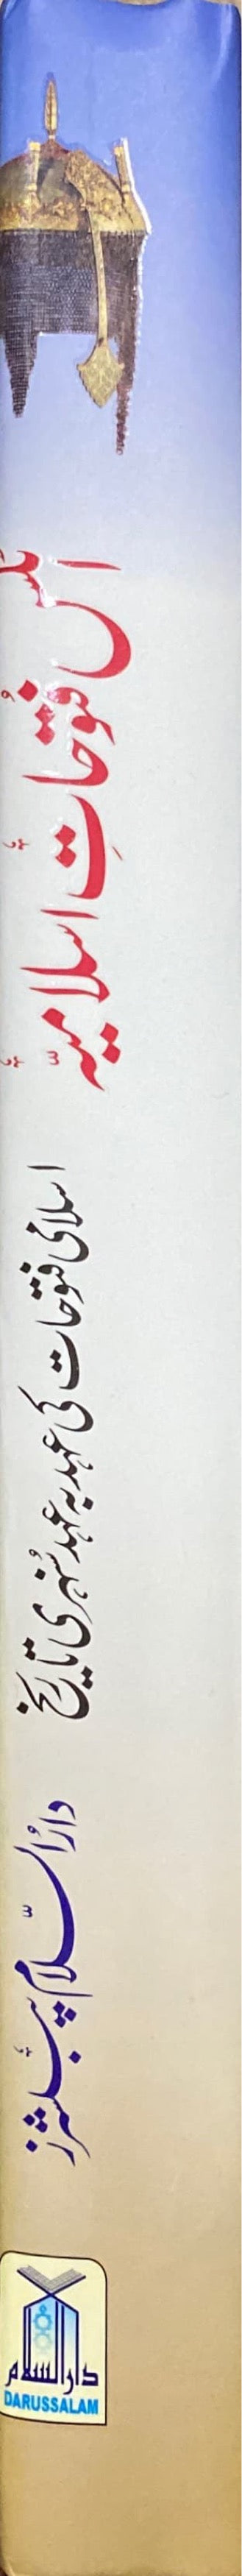 اٹلس فتوحاتِ اسلامیہّ
اسلامی فتوحات کی عہد بہ عہد سُنہری تاریخ
دارُالسّلام پبلشرز
دارالسلام
DARUSSALAM